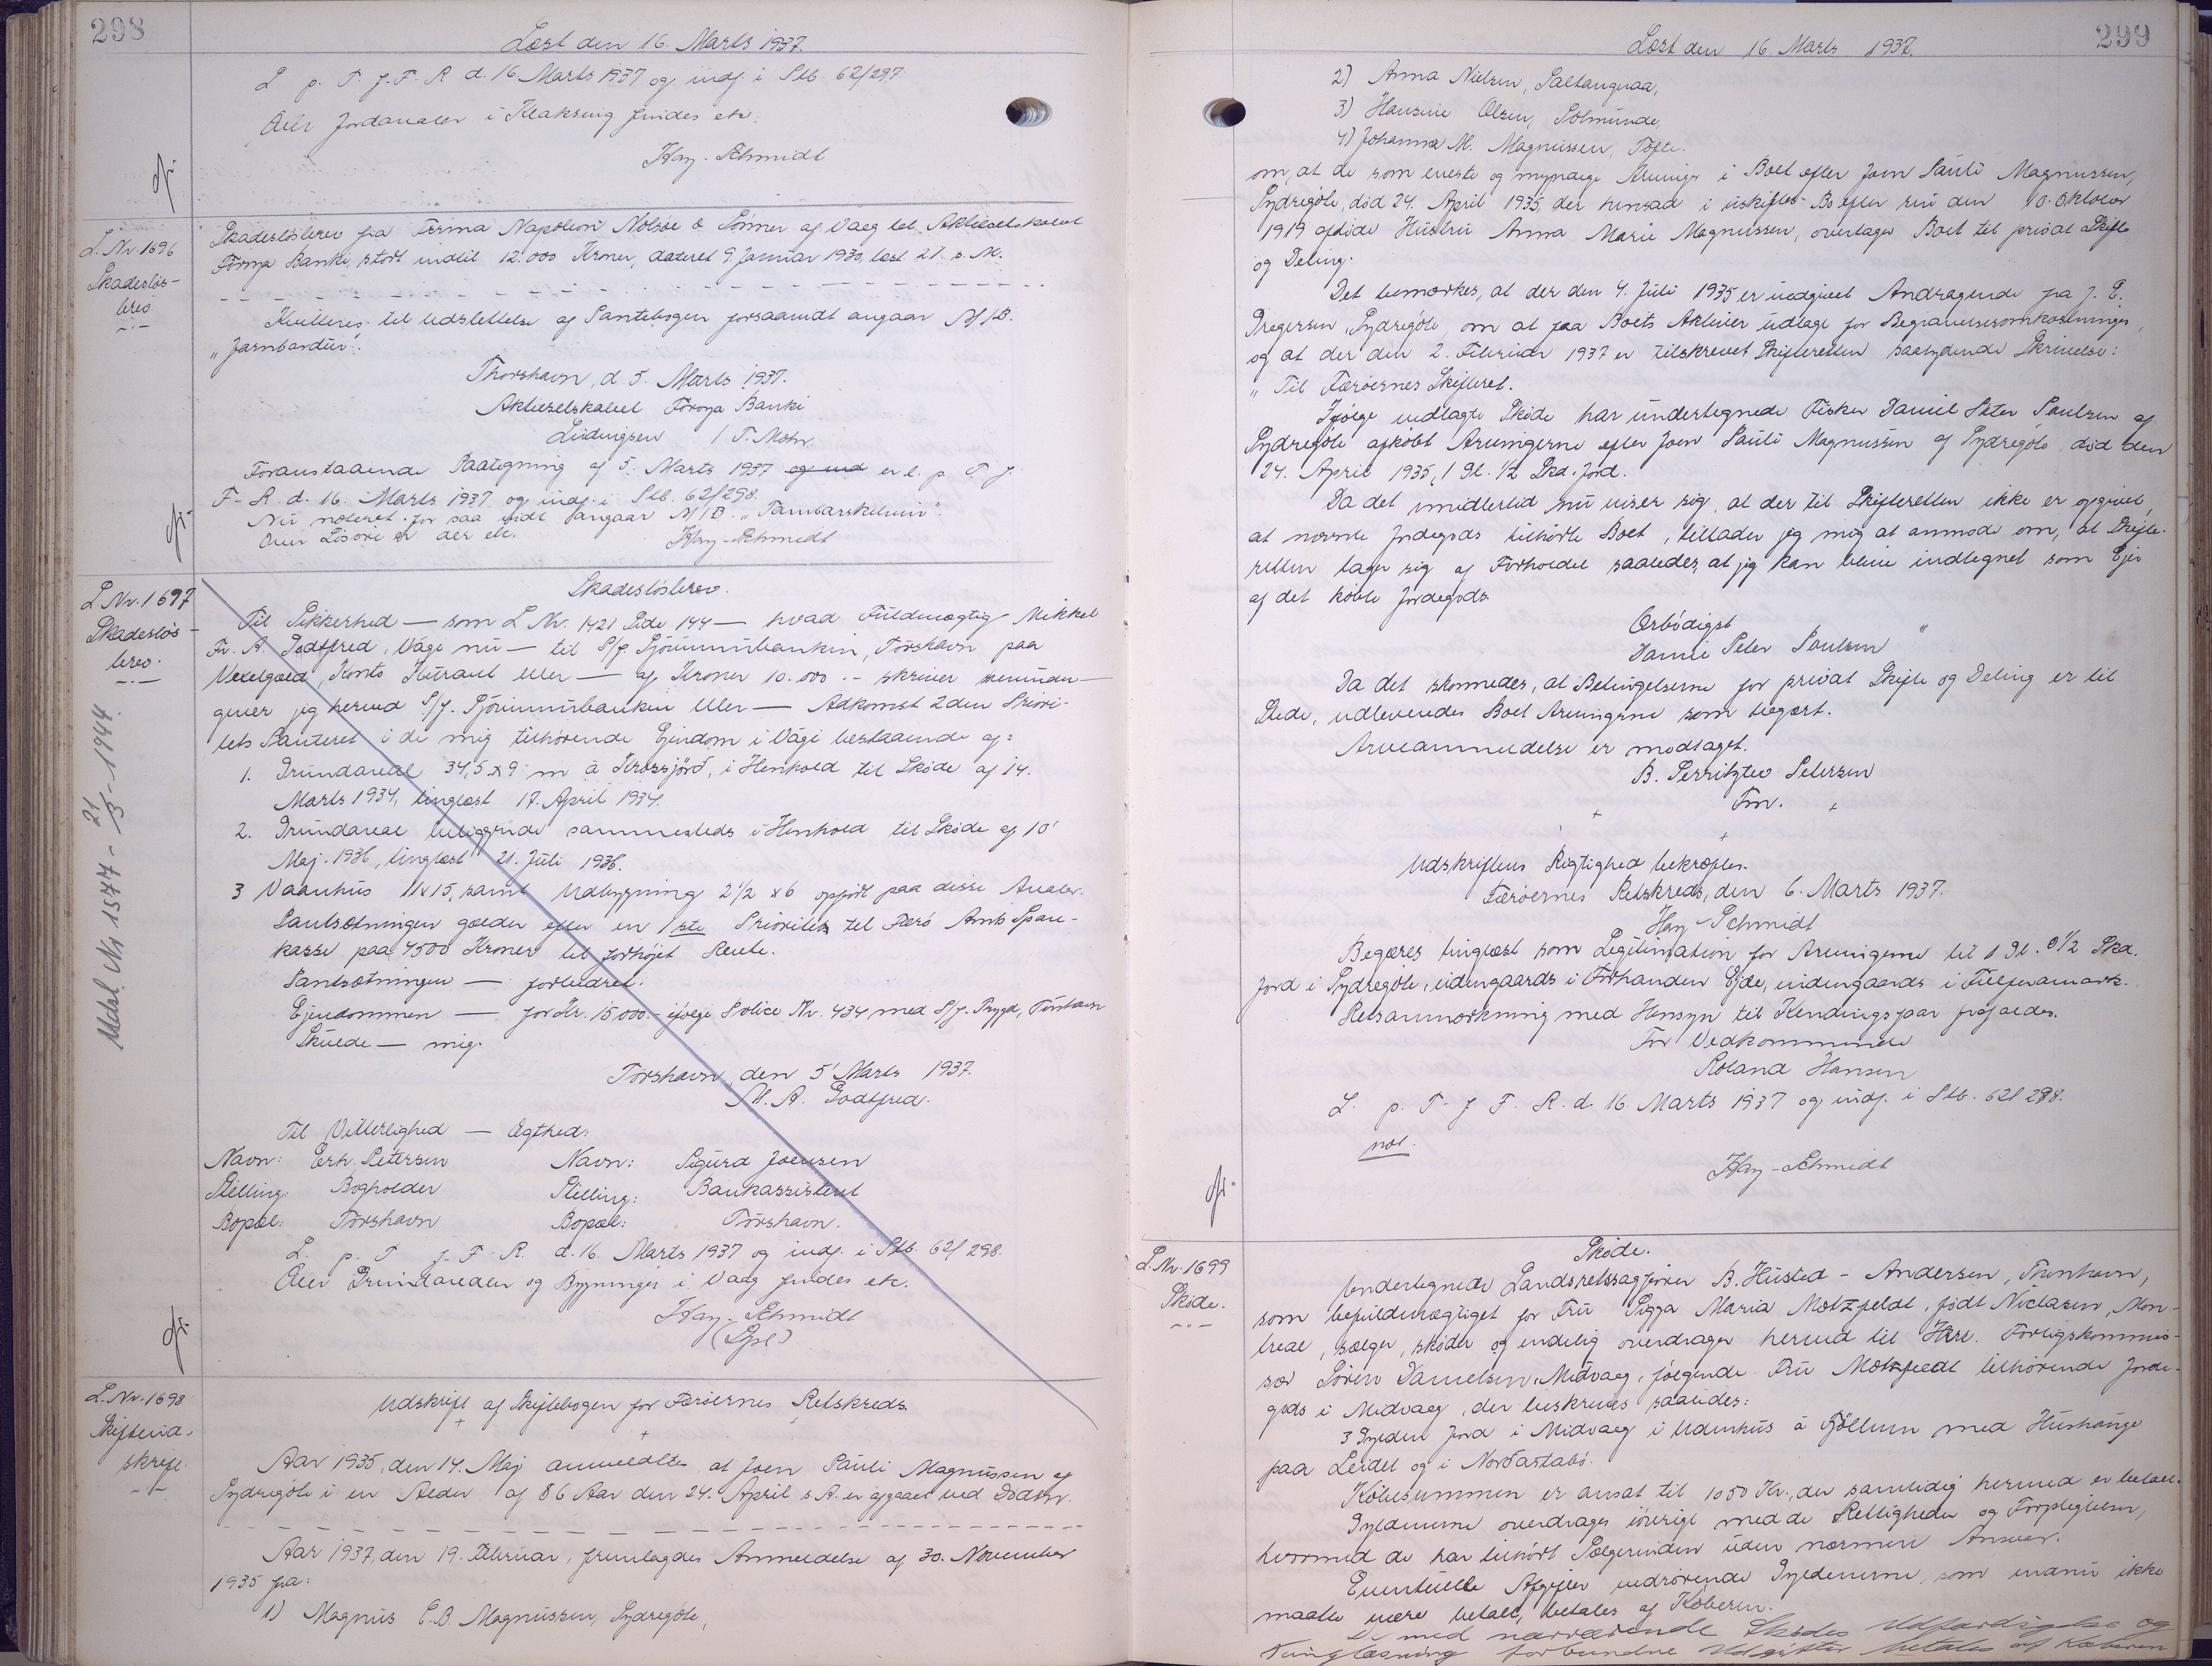 298
Læst den 16. Marts 1937.
L. p. T. f. F. R. d. 16. Marts 1937 og indf. i Stb. 62/297.
Over Jordarealer i Klaksvig findes etc.
Hay-Schmidt
L.Nr. 1696
Skadesløs-
brev
Skadesløsbrev fra Firma Napoleon Nolsøe & Sønner af Vaag til Aktieselskabet
Føroya Banki, stort indtil 12.000 Kroner, dateret 9. Januar 1930, læst 21. s. M.
Kvitteres til Udslettelse af Pantebogen forsaavidt angaar M/B.
"Jarnbardur".
Thorshavn, d. 5. Marts 1937.
Aktieselskabet Føroya Banki
Ludvigsen / T. Mohr
Foranstaaende Paategning af 5. Marts 1937 er l. p. T. f.
F. R. d. 16. Marts 1937 og indf. i Stb. 62/298.
Nu noteret for saa vidt angaar M/B. "Tambarskelvir".
er der etc.
Hay-Schmidt
L.Nr. 1697
Skadesløs-
brev.
Udsl. Nr 1577 - 21/3 - 1944.
Skadesløsbrev.
Til Sikkerhed — som L.Nr. 1421 Side 144 — hvad Fuldmægtig Mikkel
Fr. A. Godtfred, Vági nu — til S/f. Sjóvinnubankin, Tórshavn paa
Vexelgæld, Konto Kurant eller — af Kroner 10.000.- skriver
giver jeg herved S/f. Sjóvinnubankin eller — Adkomst 2den Priori-
tets Panteret i de mig tilhørende Ejendom i Vági bestaaende af:
1. Grundareal 34,5 x 9 m á Krossjørð, i Henhold til Skøde af 14.
Marts 1934, tinglæst 17. April 1934.
2. Grundareal beliggende sammesteds i Henhold til Skøde af 10'
Maj. 1936, tinglæst 21. Juli 1936.
3 Vaanhus 11x15, samt Udbygning 2½ x 6 opført paa disse Arealer.
Pantsætningen gælder efter en 1ste Prioritet til Færø Amts Spare-
kasse paa 7500 Kroner til forhøjet Rente.
Pantsætningen — forbedret.
Ejendommen — for Kr. 15.000.- ifølge Police Nr. 434 med S/f. Trygd, Tórshavn
Skulde — mig.
Tórshavn, den 5' Marts 1937.
M. A. Godtfred.
Til Vitterlighed — Ægthed:
Navn: Erh. Petersen Navn: Sigurd Joensen
Stilling: Bogholder Stilling: Bankassistent
Bopæl: Tórshavn Bopæl: Tórshavn.
L. p. T. f. F. R. d. 16. Marts 1937 og indf. i Stb. 62/298.
Over Grundarealer og Bygninger i Vaag findes etc.
Hay-Schmidt
L.Nr. 1698
Skifteud-
skrift.
Udskrift af Skiftebogen for Færøernes Retskreds.
Aar 1935, den 14. Maj anmeldtes at Joen Pauli Magnussen af
Sydregøte i en Alder af 86 Aar den 24. April s.A. er afgaaet ved Døden.
Aar 1937, den 19. Februar, fremlagdes Anmeldelse af 30. November
1935 fra:
1) Magnus E.B. Magnussen, Sydregøte,
299
Læst den 16. Marts 1937.
2) Anna Nielsen, Saltangraa,
3) Hansine Olsen, Sölmunde,
4) Johanna M. Magnussen, Tofte.
om, at de som eneste og myndige Arvinger i Boet efter Joen Pauli Magnussen,
Sydregøte, död 24. April 1935, der hensad i uskiftet Bo efter sin den 10. Oktober
1919 afdöde Hustru Anna Marie Magnussen, overtager Boet til privat Skifte
og Deling.
Det bemærkes, at der den 4. Juli 1935 er indgivet Andragende fra J. E.
Gregersen, Sydregøte, om at faa Boets Aktiver udlagt for Begravelsesomkostninger,
og at der den 2. Februar 1937 er tilskrevet Skifteretten saalydende Skrivelse:
"Til Færöernes Skifteret.
Ifölge vedlagte Sköde har undertegnede Fisker Daniel Peter Poulsen af
Sydregøte afköbt Arvingerne efter Joen Pauli Magnussen af Sydregøte, död den
24. April 1935, 1 Gl. ½ Skd. Jord.
Da det imidlertid nu viser sig, at der til Skifteretten ikke er opgivet,
at nævnte Jordegods tilhörte Boet, tillader jeg mig at anmode om, at Skifte-
retten tager sig af Forholdet saaledes, at jeg kan blive indtegnet som Ejer
af det köbte Jordegods.
Ærbödigst
Daniel Peter Poulsen "
Da det skønnedes, at Betingelserne for privat Skifte og Deling er til
Stede, udleveredes Boet Arvingerne som begært.
Arveanmeldelse er modtaget.
B. Perritzlev Petersen
Fm.
Udskriftens Rigtighed bekræftes.
Færöernes Retskreds, den 6. Marts 1937.
Hay-Schmidt
Begæres tinglæst som Legitimation for Arvingerne til 1 Gl. 0½ Skd.
Jord i Sydregøte, udengaards i Forhanden Ejde, indengaards i
Retsanmærkning med Hensyn til Kendingsfaar frafaldes.
For Vedkommende
Roland Hansen
L. p. T. f. F. R. d. 16. Marts 1937 og indf. i Stb. 62/298.
not.
Hay-Schmidt
L.Nr. 1699
Skøde.
Skøde.
Undertegnede Landsretssagfører B. Husted-Andersen, Thorshavn,
som befuldmægtiget for Fru Sigga Maria Motzfeldt, født Niclasen, Mon-
treal, sælger, skøder og endelig overdrager herved til Herr. Forligskommis-
sær Søren Danielsen, Midvaag, følgende Fru Motzfeldt tilhørende Jorde-
gods i Midvaag, der beskrives saaledes:
3 Gylden Jord i Midvaag i Udenhus á Tjöllum med Hushauge
paa Leidet og i Nordastabó.
Købesummen er ansat til 1050 Kr., der samtidig hermed er betalt.
Gyldenerne overdrages iøvrigt med de Rettigheder og Forpligtelser,
hvormed de har tilhørt Sælgerinden uden nærmere Ansvar.
Eventuelle Afgifter vedrørende Gyldenerne, som endnu ikke
maatte være betalt, betales af Køberen.
De med nærværende Skødes Udfærdigelse og
Tinglæsning forbundne Udgifter betales af Køberen